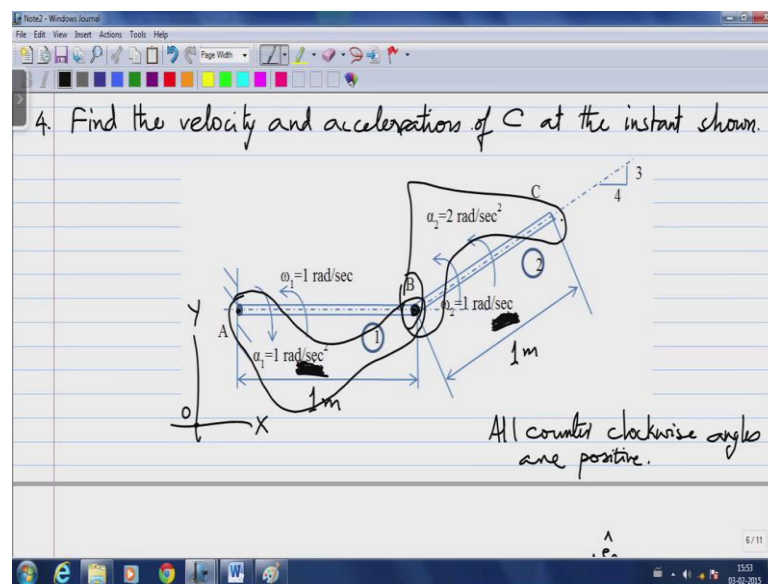 Note2 - Windows Journal
File Edit View Insert Actions Tools Help
Page Width
B I
4. Find the velocity and accelerations of C at the instant shown.
3
4
C
α₂=2 rad/sec²
ω₁=1 rad/sec
B
2
ω₂=1 rad/sec
Y
A
1
α₁=1 rad/sec²
1m
1m
O
X
All counter clockwise angles
are positive.
6/11
15:53
03-02-2015